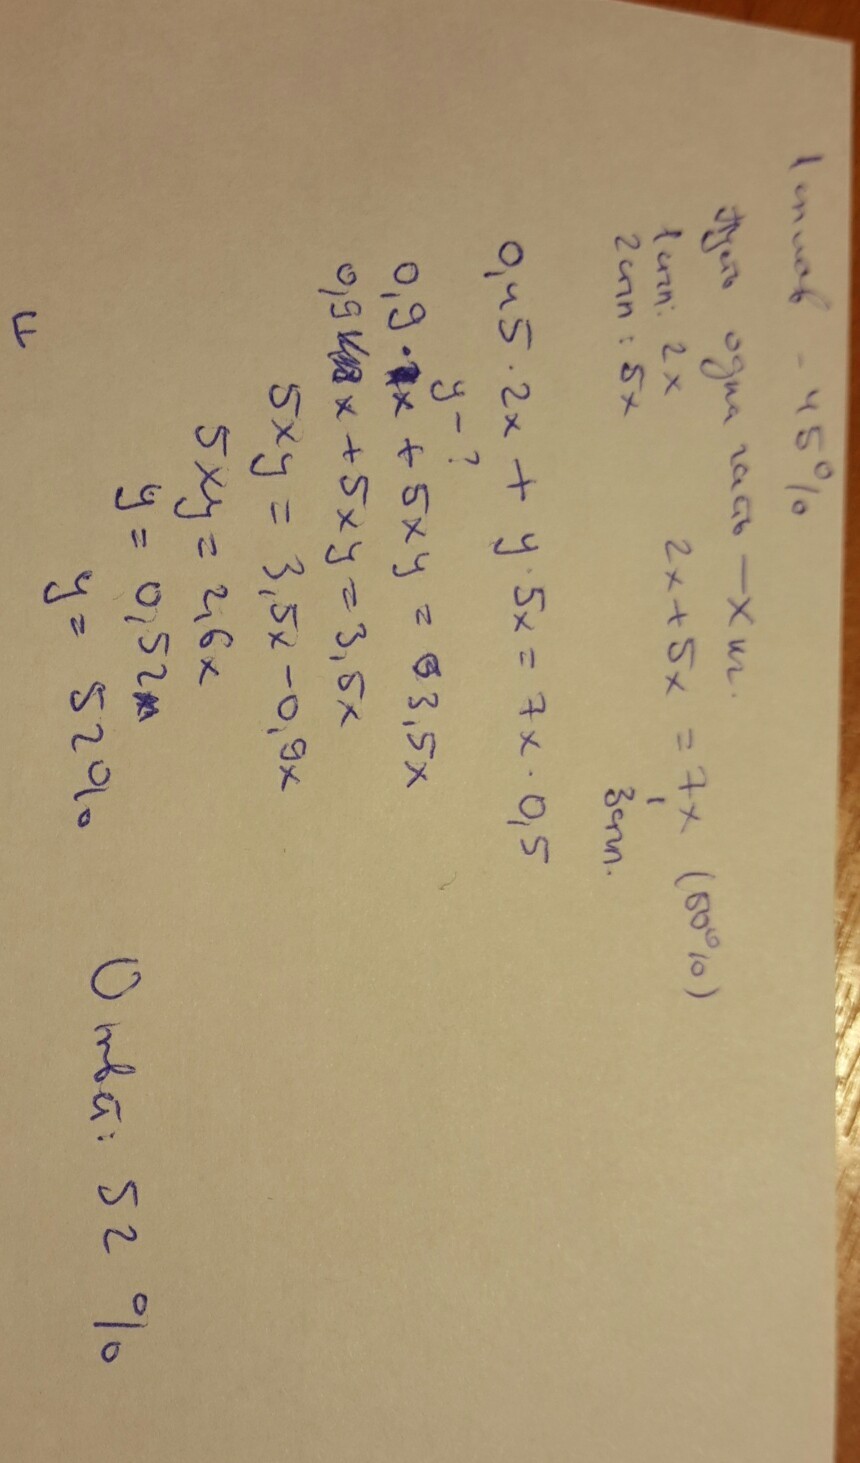 1 сплав - 45%
Пусть одна часть - x кг.
1 спл: 2x 2x + 5x = 7x (50%)
2 спл: 5x 3 спл.
0,45 · 2x + y · 5x = 7x · 0,5
y - ?
0,9 · x + 5xy = 3,5x
0,9 x + 5xy = 3,5x
5xy = 3,5x - 0,9x
5xy = 2,6x
y = 0,52
y = 52%
Ответ: 52 %